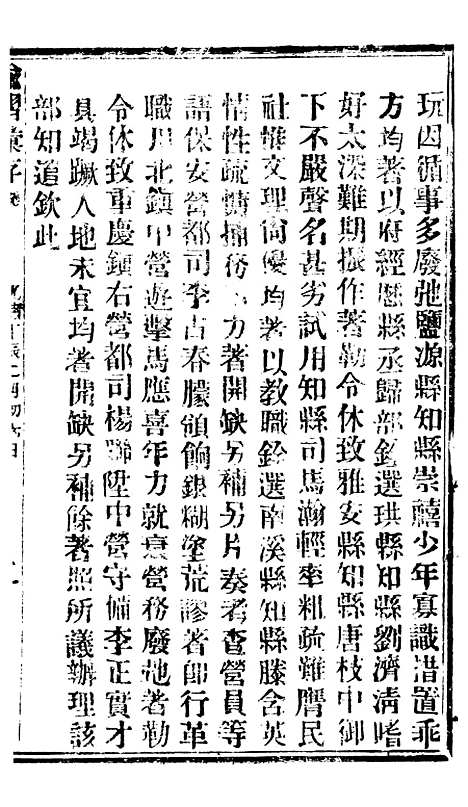 玩因循事多廢弛鹽源縣知縣崇禧少年寡識措置乖
方均著以府經歷縣丞歸部銓選珙縣知縣劉濟清嗜
好太深難期振作著勒令休致雅安縣知縣唐枝中御
下不嚴聲名甚劣試用知縣司馬瀚輕率粗疏難膺民
社惟文理尚優均著以教職銓選南溪縣知縣滕含英
情性疏慵捕務 力著開缺另補另片奏考查營員等
語保安營都司李占春朦領餉銀糊塗荒謬著即行革
職川北鎮中營遊擊馬應喜年力就衰營務廢弛著勒
令休致重慶鎮右營都司楊聯陞中營守備李正實才
具竭蹶人地未宜均著開缺另補餘著照所議辦理該
部知道欽此